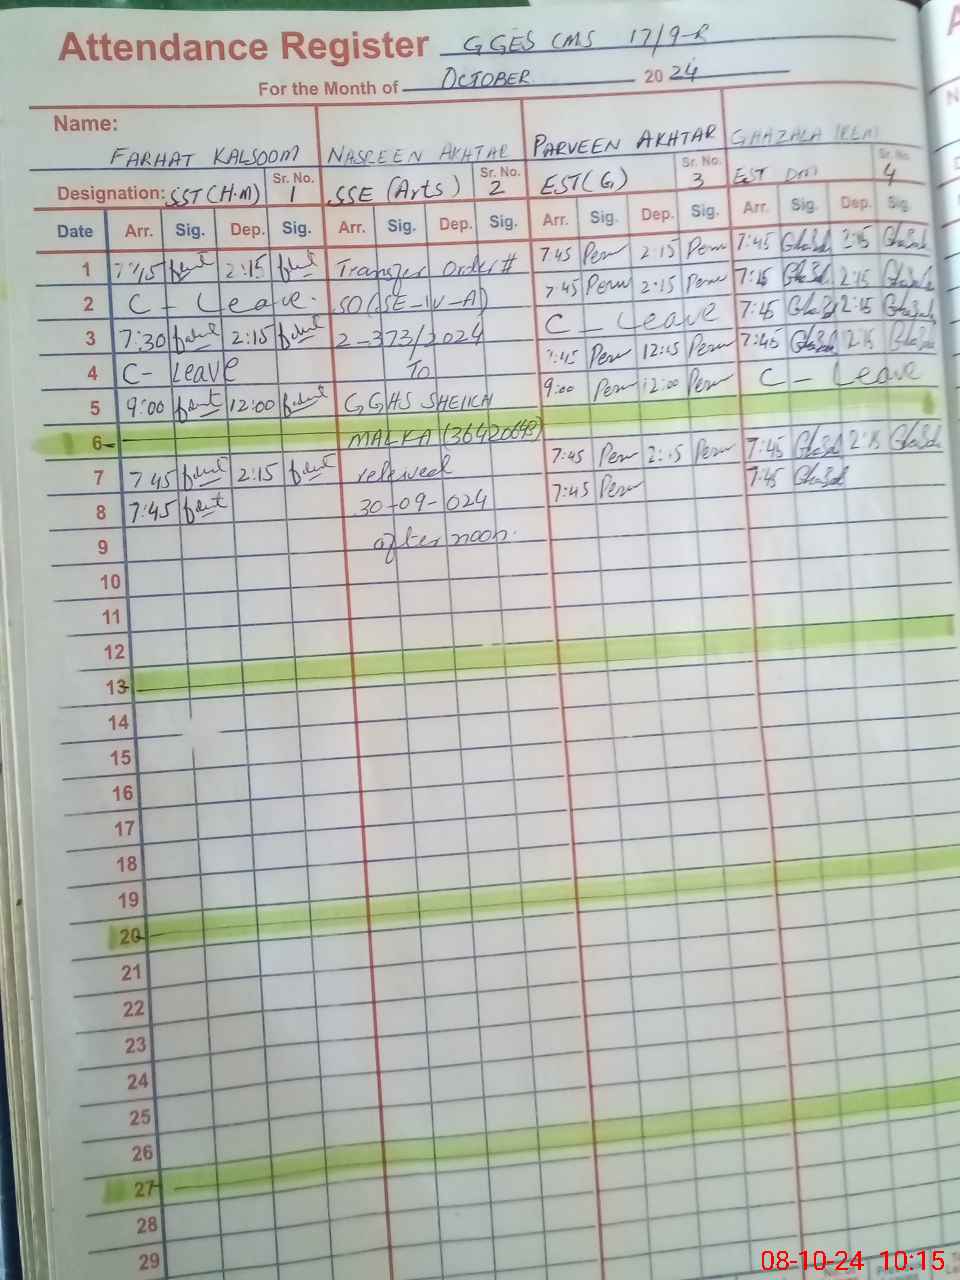 Attendance Register GGES CMS 17/9-R
For the Month of OCTOBER 2024
Name:
FARHAT KALSOOM NASREEN AKHTAR PARVEEN AKHTAR GHAZALA IREM
Designation: SST (H.M) Sr. No. 1 SSE (Arts) Sr. No. 2 EST (G) Sr. No. 3 EST DM Sr. No. 4
Date Arr. Sig. Dep. Sig. Arr. Sig. Dep. Sig. Arr. Sig. Dep. Sig. Arr. Sig. Dep. Sig.
1 7:45 2:15 Transfer Order # 7:45 Perv 2:15 Perv 7:45 2:15
2 C - Leave. SO(SE-IV-A) 7:45 Perv 2:15 Perv 7:45 2:15
3 7:30 2:15 2-373/2024 C - Leave 7:45 2:15
4 C- Leave To 7:45 Perv 12:15 Perv 7:45 2:15
5 9:00 12:00 GGHS SHEIKH 9:00 Perv 12:00 Perv C - Leave
6 MALKA
7 7:45 2:15 relieved 7:45 Perv 2:15 Perv 7:45 2:15
8 7:45 30-09-024 7:45 Perv 7:45
9 after noon.
10
11
12
13
14
15
16
17
18
19
20
21
22
23
24
25
26
27
28
29
08-10-24 10:15